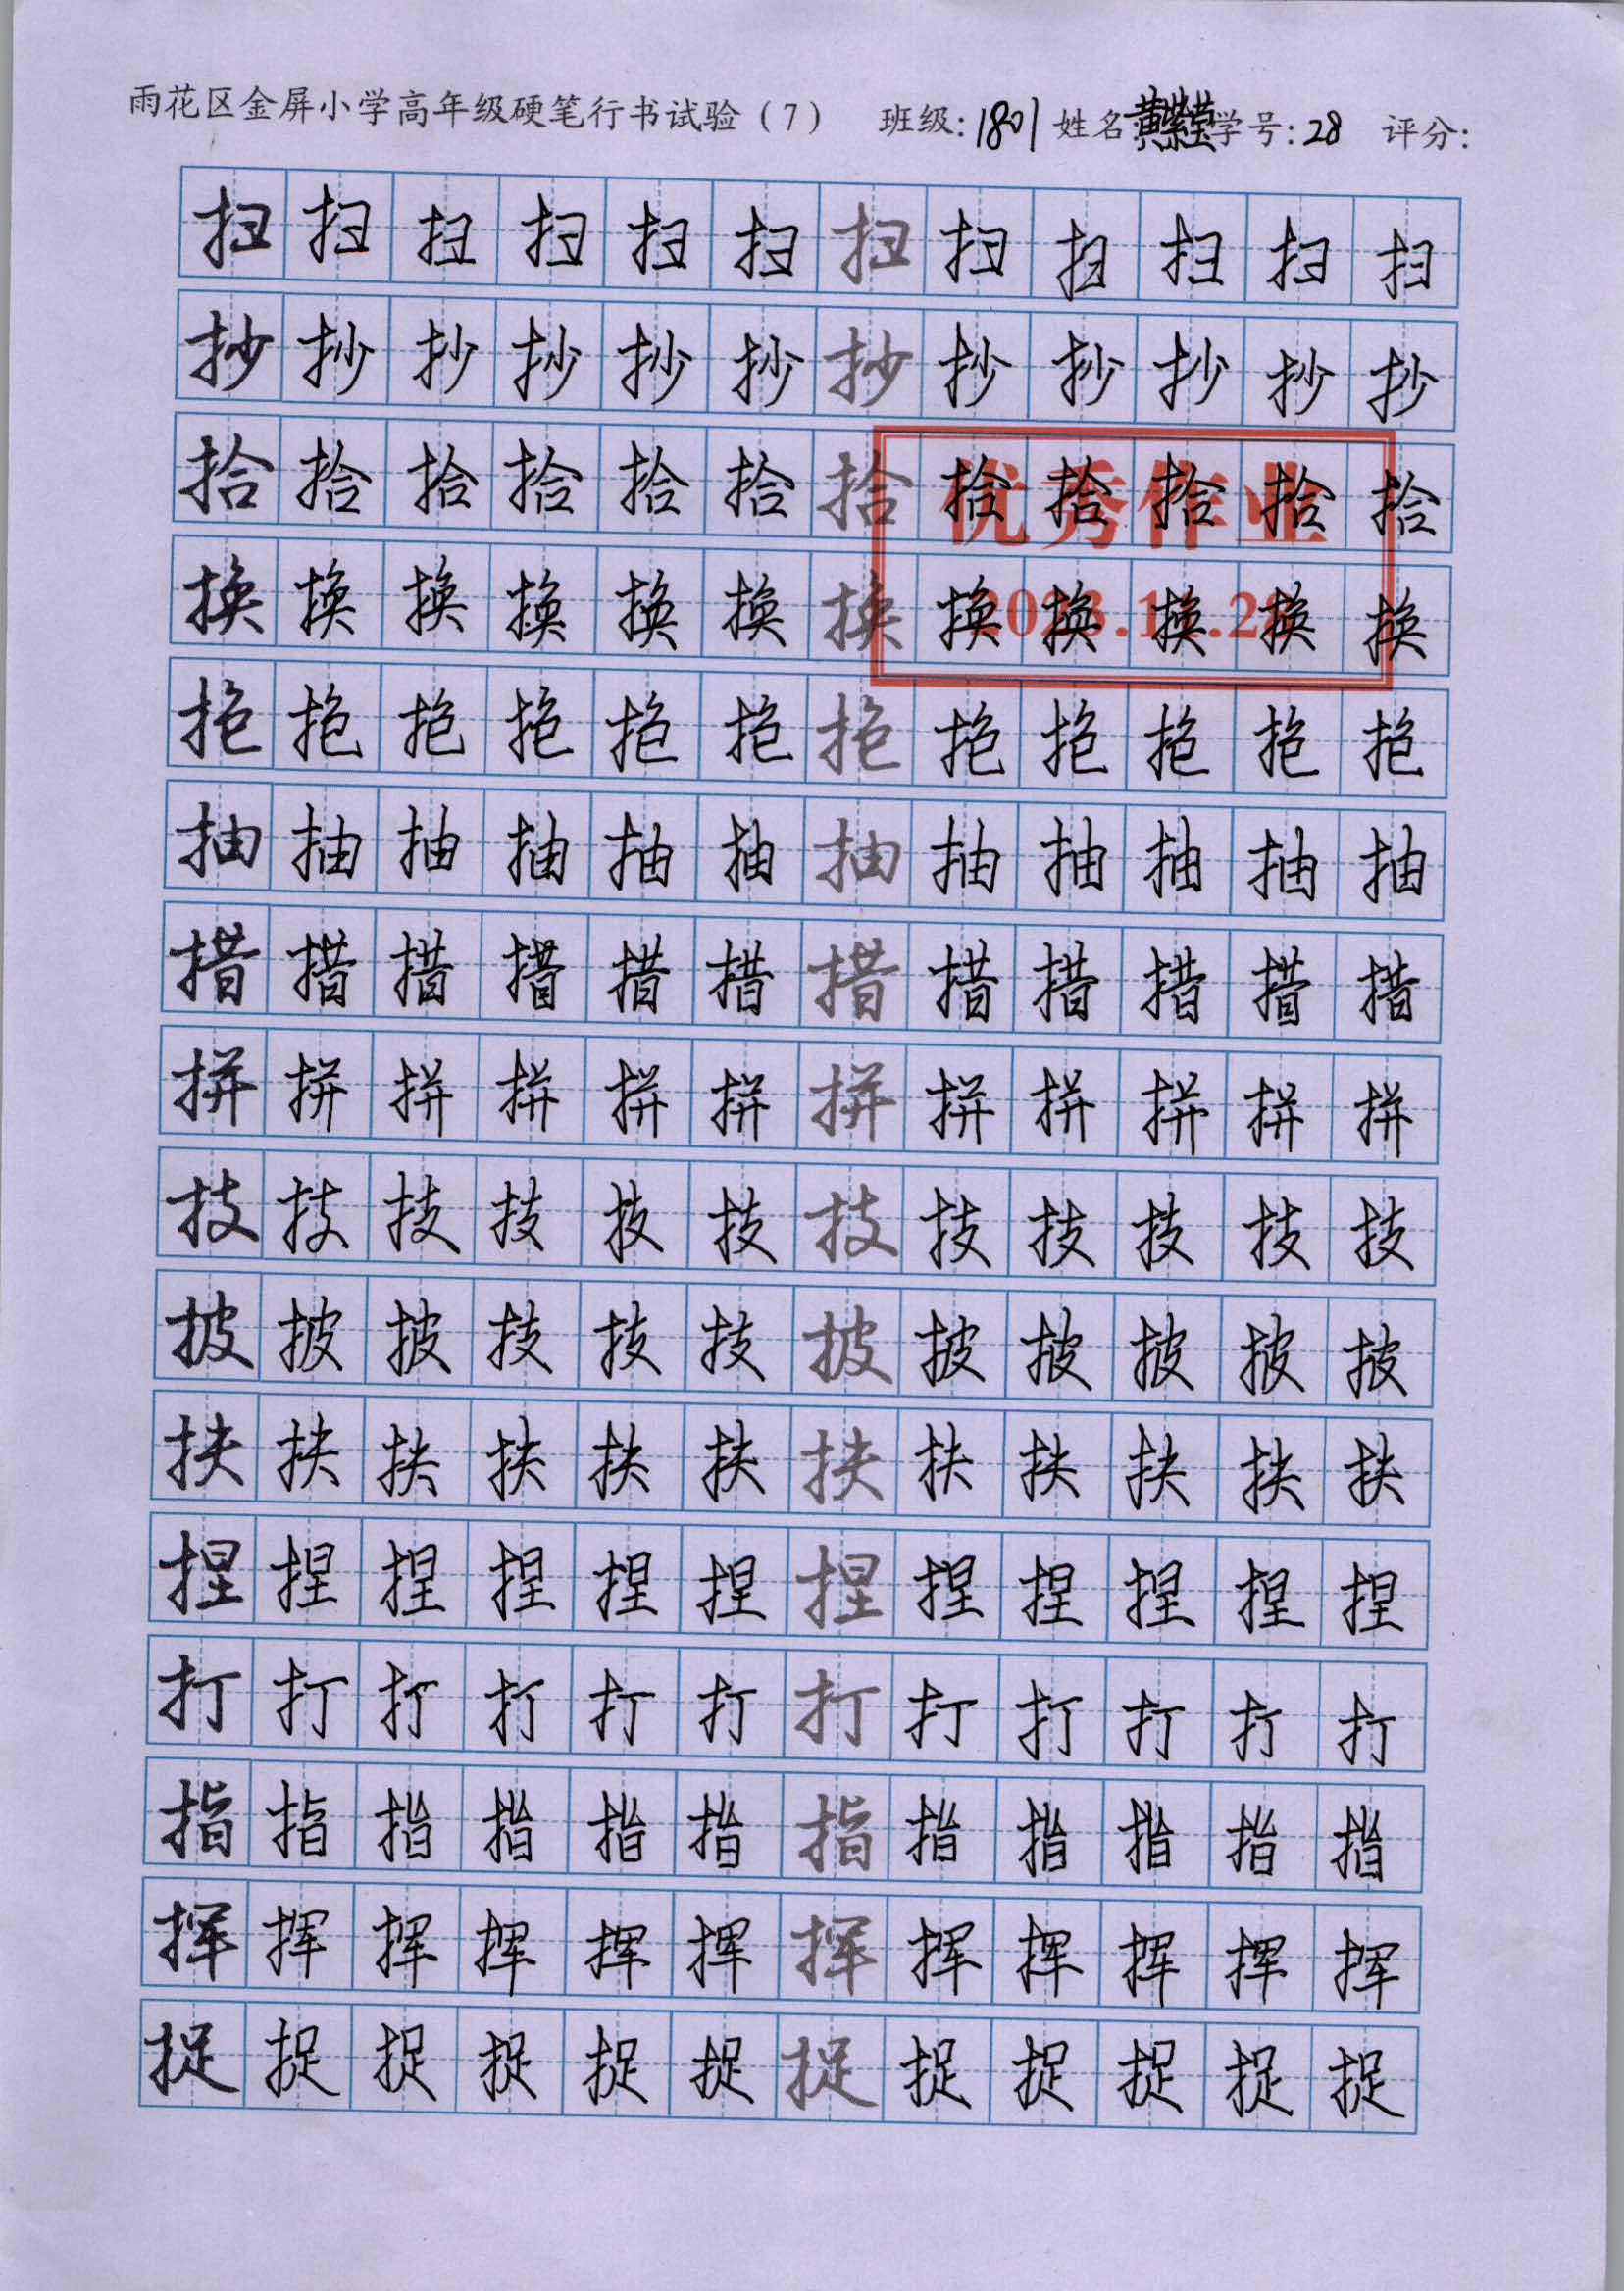 雨花区金屏小学高年级硬笔行书试验（7） 班级：1801 姓名：黄紫莹 学号：28 评分：
扫扫扫扫扫扫扫扫扫扫扫扫
抄抄抄抄抄抄抄抄抄抄抄抄
拾拾拾拾拾拾拾拾拾拾拾拾
优秀作业
换换换换换换换换换换换换
抱抱抱抱抱抱抱抱抱抱抱抱
抽抽抽抽抽抽抽抽抽抽抽抽
措措措措措措措措措措措措
拼拼拼拼拼拼拼拼拼拼拼拼
技技技技技技技技技技技技
披披披技技技披披披披披披
扶扶扶扶扶扶扶扶扶扶扶扶
捏捏捏捏捏捏捏捏捏捏捏捏
打打打打打打打打打打打打
指指指指指指指指指指指指
挥挥挥挥挥挥挥挥挥挥挥挥
捉捉捉捉捉捉捉捉捉捉捉捉